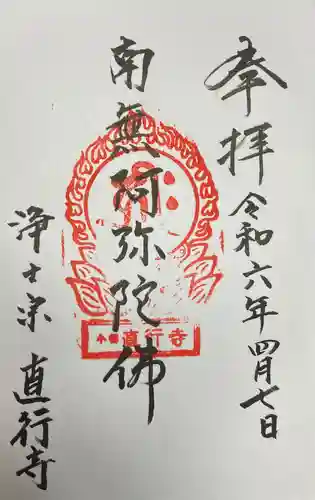 奉拝
令和六年四月七日
南無阿弥陀佛
直行寺
浄土宗
直行寺